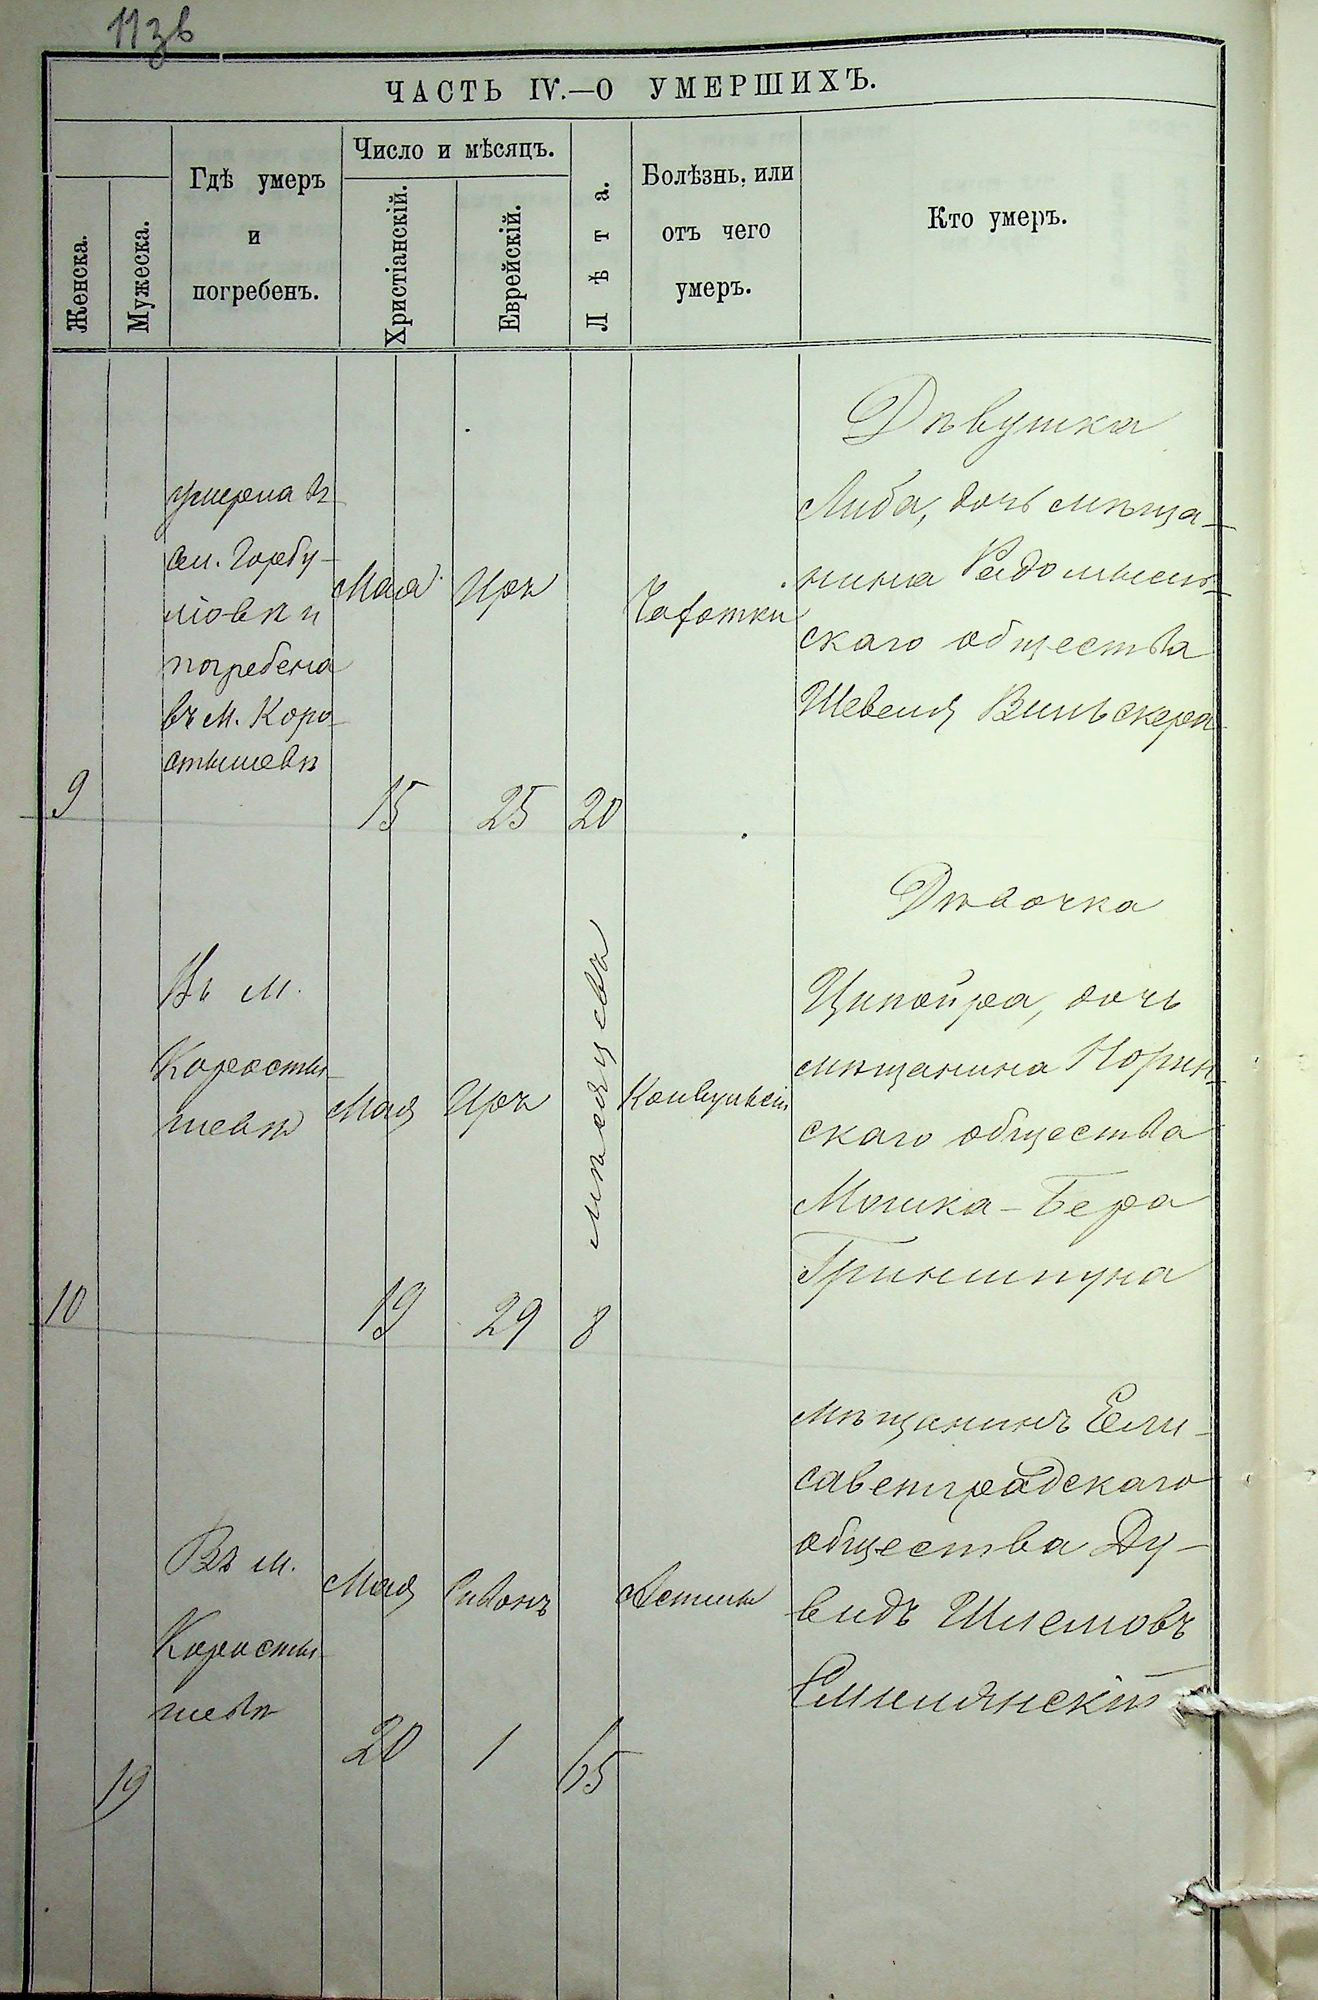 11зв
ЧАСТЬ IV.—О УМЕРШИХЪ.
Женска.
Мужеска.
Гдѣ умеръ
и
погребенъ.
Число и мѣсяцъ.
Христіанскій.
Еврейскій.
Лѣта.
Болѣзнь, или
отъ чего
умеръ.
Кто умеръ.
9
умерла въ
сел. Горбу-
ловкѣ и
погребена
въ м. Коро-
стышевѣ
Мая
15
Иръ
25
20
Чахотки
Дѣвушка
Либа, дочь мѣща-
нина Радомысль-
скаго общества
Шевеля Вильскера
10
Въ м.
Коросты-
шевѣ
Мая
19
Иръ
29
8
мѣсяцевъ
Конвульсіи
Дѣвочка
Ципойра, дочь
мѣщанина Норин-
скаго общества
Мошка-Бера
Гриншпуна
19
Въ м.
Коросты-
шевѣ
Мая
20
Сивонъ
1
65
Астмы
мѣщанинъ Ели-
саветградскаго
общества Ду-
видъ Шлемовъ
Смилянскій